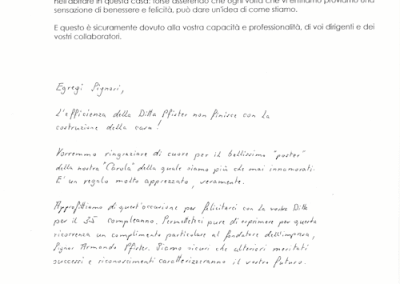 nell'abitare in questa casa: forse asserendo che ogni volta che vi entriamo proviamo una
sensazione di benessere e felicità, può dare un'idea di come stiamo.
E questo è sicuramente dovuto alla vostra capacità e professionalità, di voi dirigenti e dei
vostri collaboratori.
Egregi Signori,
L'efficienza della Ditta Pfister non finisce con la
costruzione della casa!
Vorremmo ringraziare di cuore per il bellissimo "poster"
della nostra "Carola" della quale siamo più che mai innamorati.
E' un regalo molto apprezzato, veramente.
Approfittiamo di quest'occasione per felicitarci con la vostra Ditta
per il 35° compleanno. Permetteteci pure di esprimere per questa
ricorrenza un complimento particolare al fondatore dell'impresa,
Signor Armando Pfister. Siamo sicuri che ulteriori meritati
successi e riconoscimenti caratterizzeranno il vostro futuro.